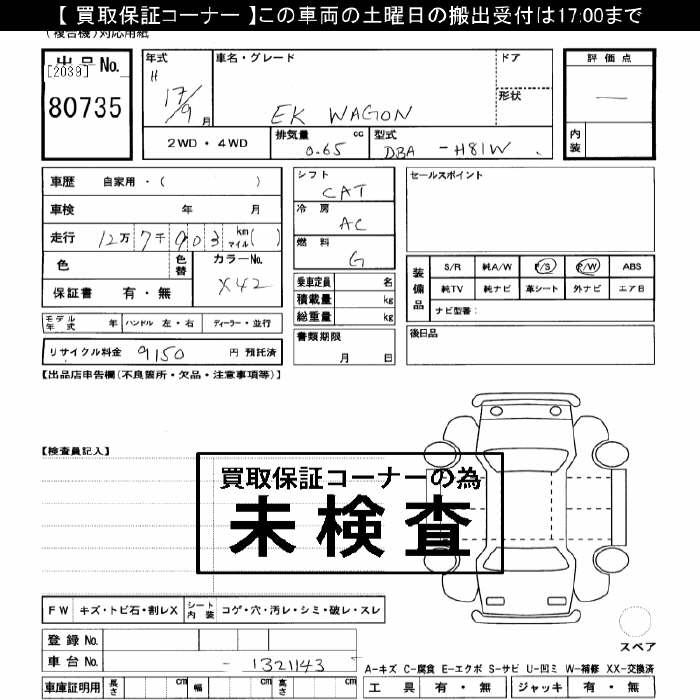 【 買取保証コーナー 】この車両の土曜日の搬出受付は17:00まで
(複合機)対応用紙
出品No.
[2039]
80735
年式
H
17/9 月
車名・グレード
EK WAGON
ドア
形状
2WD・4WD
排気量 cc
0.65
型式
DBA - H81W
評価点
—
内装
車歴 自家用・( )
車検 年 月
走行 12万7千903 km マイル( )
色
色替
カラーNo.
X42
保証書 有・無
モデル年式 年 ハンドル 左・右 ディーラー・並行
リサイクル料金 9150 円 預託済
シフト
CAT
冷房
AC
燃料
G
乗車定員 名
積載量 kg
総重量 kg
書類期限
月 日
セールスポイント
装備品
S/R 純A/W P/S P/W ABS
純TV 純ナビ 革シート 外ナビ エアB
ナビ型番:
後日品
【出品店申告欄(不良箇所・欠品・注意事項等)】
【検査員記入】
買取保証コーナーの為
未検査
FW キズ・トビ石・割レX シート内装 コゲ・穴・汚レ・シミ・破レ・スレ
スペア
登録No.
車台No. - 1321143
A-キズ C-腐食 E-エクボ S-サビ U-凹ミ W-補修 XX-交換済
車庫証明用 長さ cm 幅 cm 高さ cm
工具 有・無 ジャッキ 有・無